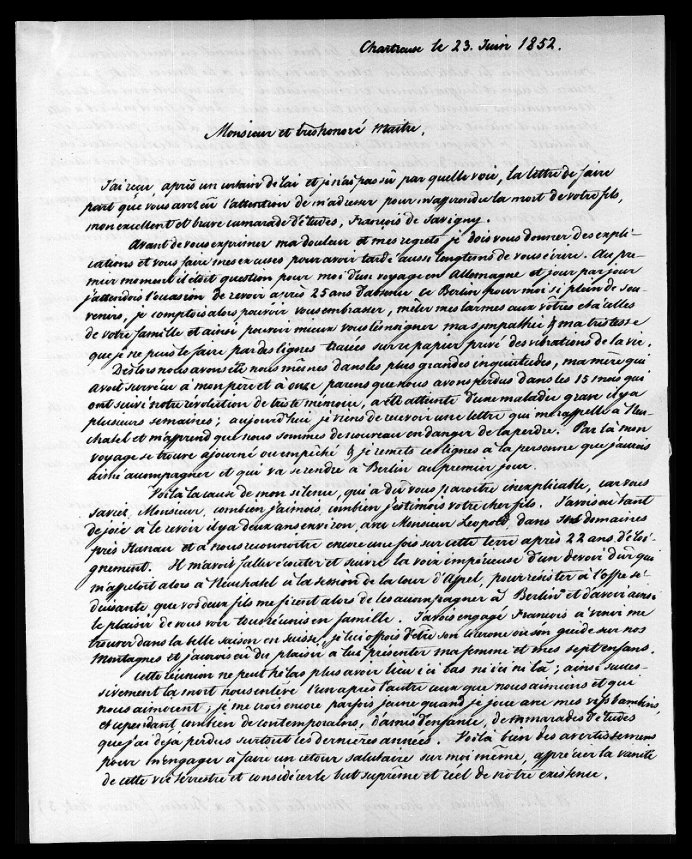 Chartreuse le 23. Juin 1852.
Monsieur et très honoré Maitre,
J'ai reçu, après un certain délai et je n'ai pas sû par quelle voie, la lettre de faire
part que vous avez eu l'attention de m'adresser pour m'apprendre la mort de votre fils,
mon excellent et brave camarade d'études, François de Savigny.
Avant de vous exprimer ma douleur et mes regrets je dois vous donner des expli-
cations et vous faire mes excuses pour avoir tardé aussi longtems de vous écrire. Au pre-
mier moment il était question pour moi d'un voyage en Allemagne et jour par jour
j'attendois l'occasion de revoir après 25 ans d'absence ce Berlin pour moi si plein de sou-
venirs, je comptois alors pouvoir vous embrasser, mêler mes larmes aux vôtres et à celles
de votre famille et ainsi pouvoir mieux vous témoigner ma sympathie & ma tristesse
que je ne puis le faire par des lignes tracées sur ce papier privé des vibrations de la vie.
Dès lors nous avons été nous mêmes dans les plus grandes inquiétudes, ma mère qui
avoit survécu à mon père et à onze parens que nous avons perdus dans les 15 mois qui
ont suivi notre révolution de triste mémoire, a été atteinte d'une maladie grave il y a
plusieurs semaines; aujourd'hui je viens de recevoir une lettre qui me rappelle à Neu-
chatel et m'apprend que nous sommes de nouveau en danger de la perdre. Par là mon
voyage se trouve ajourné ou empêché & je remets ces lignes à la personne que j'aurois
ainsi accompagnée et qui va se rendre à Berlin au premier jour.
Voilà la cause de mon silence, qui a dû vous paroitre inexplicable, car vous
savez, Monsieur, combien j'aimois, combien j'estimois votre cher fils. J'avois eu tant
de joie à le revoir il y a deux ans environ, avec Monsieur Leopold, dans ses domaines
près Hanau et à nous reconnoitre encore une fois sur cette terre après 22 ans d'éloi-
gnement. Il m'avoit fallu écouter et suivre la voix impérieuse d'un devoir dur qui
m'appeloit alors à Neuchatel à la session de la Cour d'Appel, pour résister à l'offre sé-
duisante que vos deux fils me firent alors de les accompagner à Berlin et d'avoir ainsi
le plaisir de vous voir tous réunis en famille. J'avois engagé François à venir me
trouver dans la belle saison en Suisse, je lui offrois d'être son cicerone ou son guide sur nos
Montagnes et j'aurois eû du plaisir à lui présenter ma femme et mes sept enfans.
Cette réunion ne peut hélas plus avoir lieu ici bas ni ici ni là; ainsi succes-
sivement la mort nous enlève l'un après l'autre ceux que nous aimions et qui
nous aimoient; je me crois encore parfois jeune quand je joue avec mes vifs bambins
et cependant combien de contemporains, d'amis d'enfance, de camarades d'études
que j'ai déjà perdus surtout ces dernières années. Voilà bien des avertissemens
pour m'engager à faire un retour salutaire sur moi même, apprécier la vanité
de cette vie terrestre et considérer le but suprême et réel de notre existence.